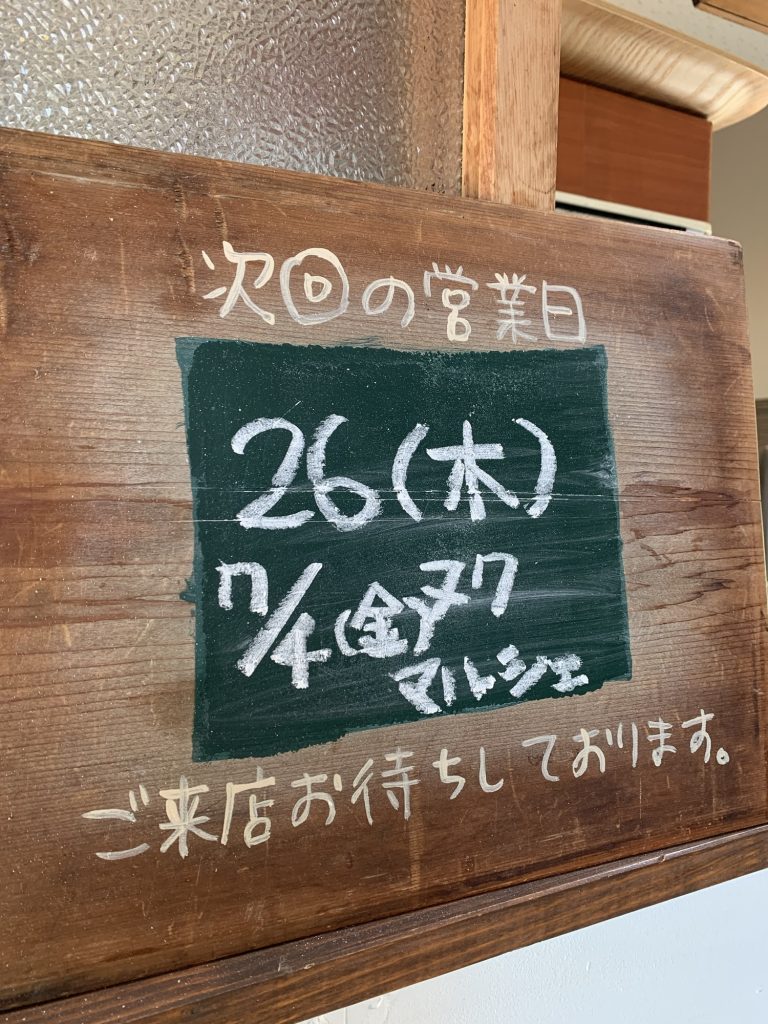 次回の営業日
26(木)
7/4(金)ヌク
マルシェ
ご来店お待ちしております。